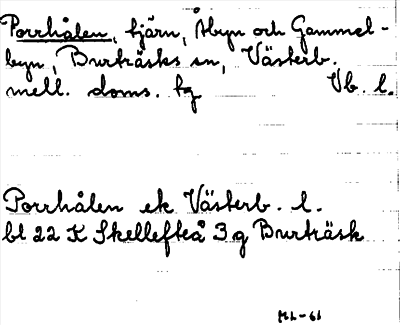 Porrhålen, tjärn, Åbyn och Gammel-
byn, Burträsks sn, Västerb.
mell. doms. tg Vb. l.
Porrhålen ek Västerb. l.
bl 22 K Skellefteå 3 g Burträsk